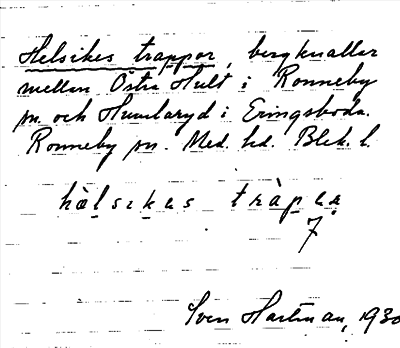 Helsikes trappor, bergknallar
mellan Östra Hult i Ronneby
sn. och Humlaryd i Eringsboda.
Ronneby sn. Med. hd. Blek. l.
hɛ̀lsɩkəs tràpəa̤
7
Sven Hartman, 1930